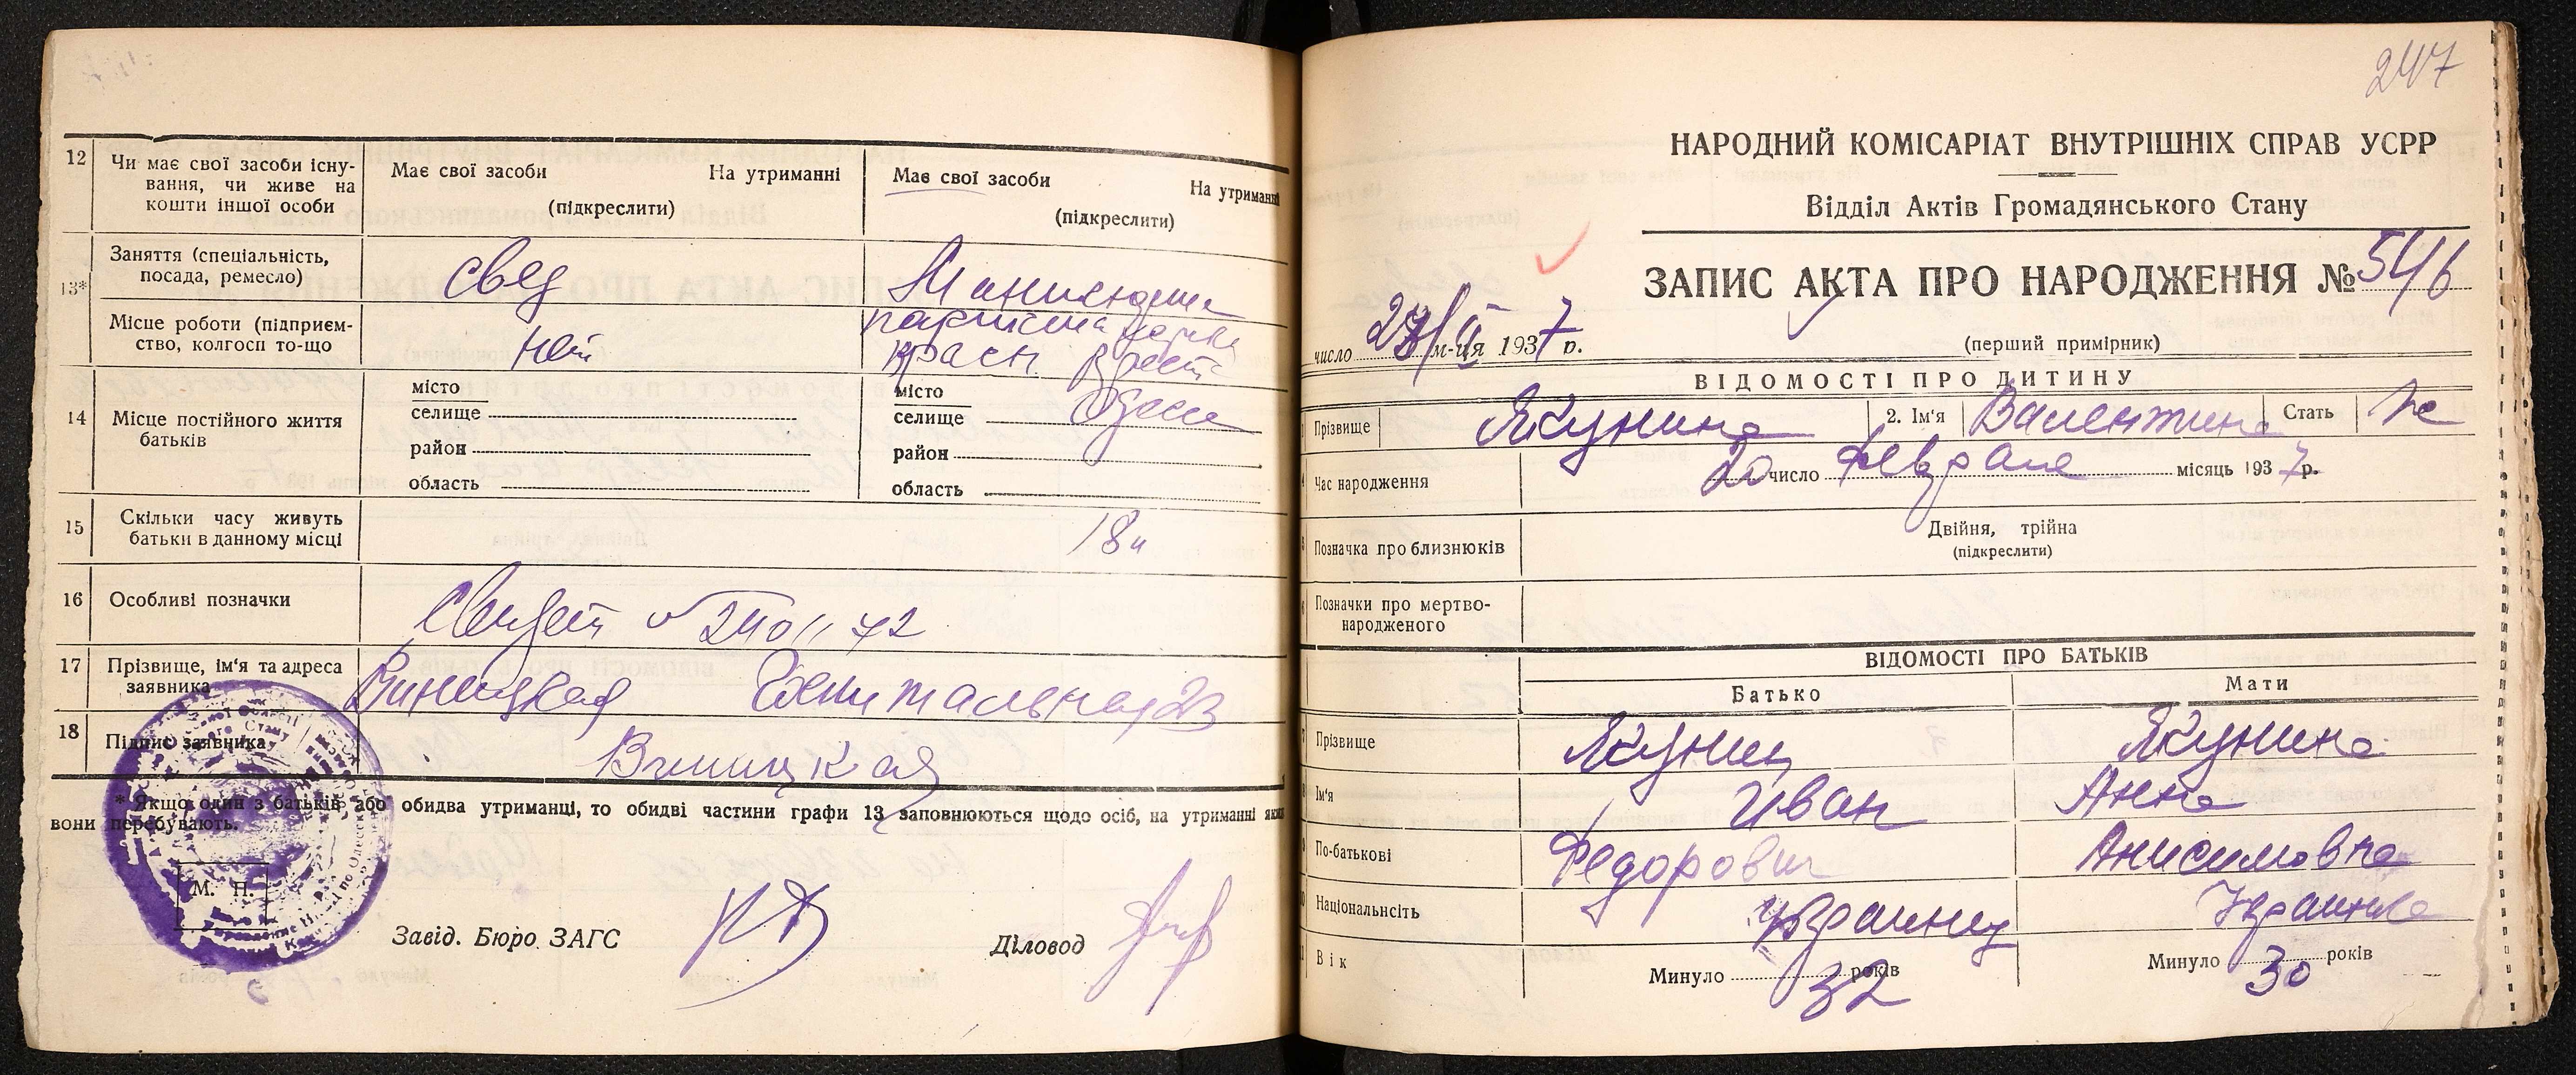 12 Чи має свої засоби існу-
вання, чи живе на
кошти іншої особи
Має свої засоби На утриманні
(підкреслити)
Має свої засоби На утриманні
(підкреслити)
13* Заняття (спеціальність,
посада, ремесло)
свед
Місце роботи (підприєм-
ство, колгосп то-що
нет
красн.
14 Місце постійного життя
батьків
місто
селище
район
область
місто
селище Одесса
район
область
15 Скільки часу живуть
батьки в данному місці
18
16 Особливі позначки
72
17 Прізвище, ім'я та адреса
заявника
Виницкая 23
18 Підпис заявника
Виницкая
* Якщо один з батьків або обидва утриманці, то обидві частини графи 13 заповнюються щодо осіб, на утриманні яких
вони перебувають.
М. П.
Завід. Бюро ЗАГС
Діловод
247
НАРОДНИЙ КОМІСАРІАТ ВНУТРІШНІХ СПРАВ УСРР
Відділ Актів Громадянського Стану
ЗАПИС АКТА ПРО НАРОДЖЕННЯ № 546
число м-ця 1937 р.
(перший примірник)
ВІДОМОСТІ ПРО ДИТИНУ
Прізвище Якунина 2. Ім'я Валентина Стать ж
Час народження 20 число февраля місяць 1937 р.
Позначка про близнюків
Двійня, трійна
(підкреслити)
Позначки про мертво-
народженого
ВІДОМОСТІ ПРО БАТЬКІВ
Батько Мати
Прізвище Якунин Якунина
Ім'я Иван Анна
По-батькові Федорович Анисимовна
Національнсіть
Вік Минуло 32 років Минуло 30 років